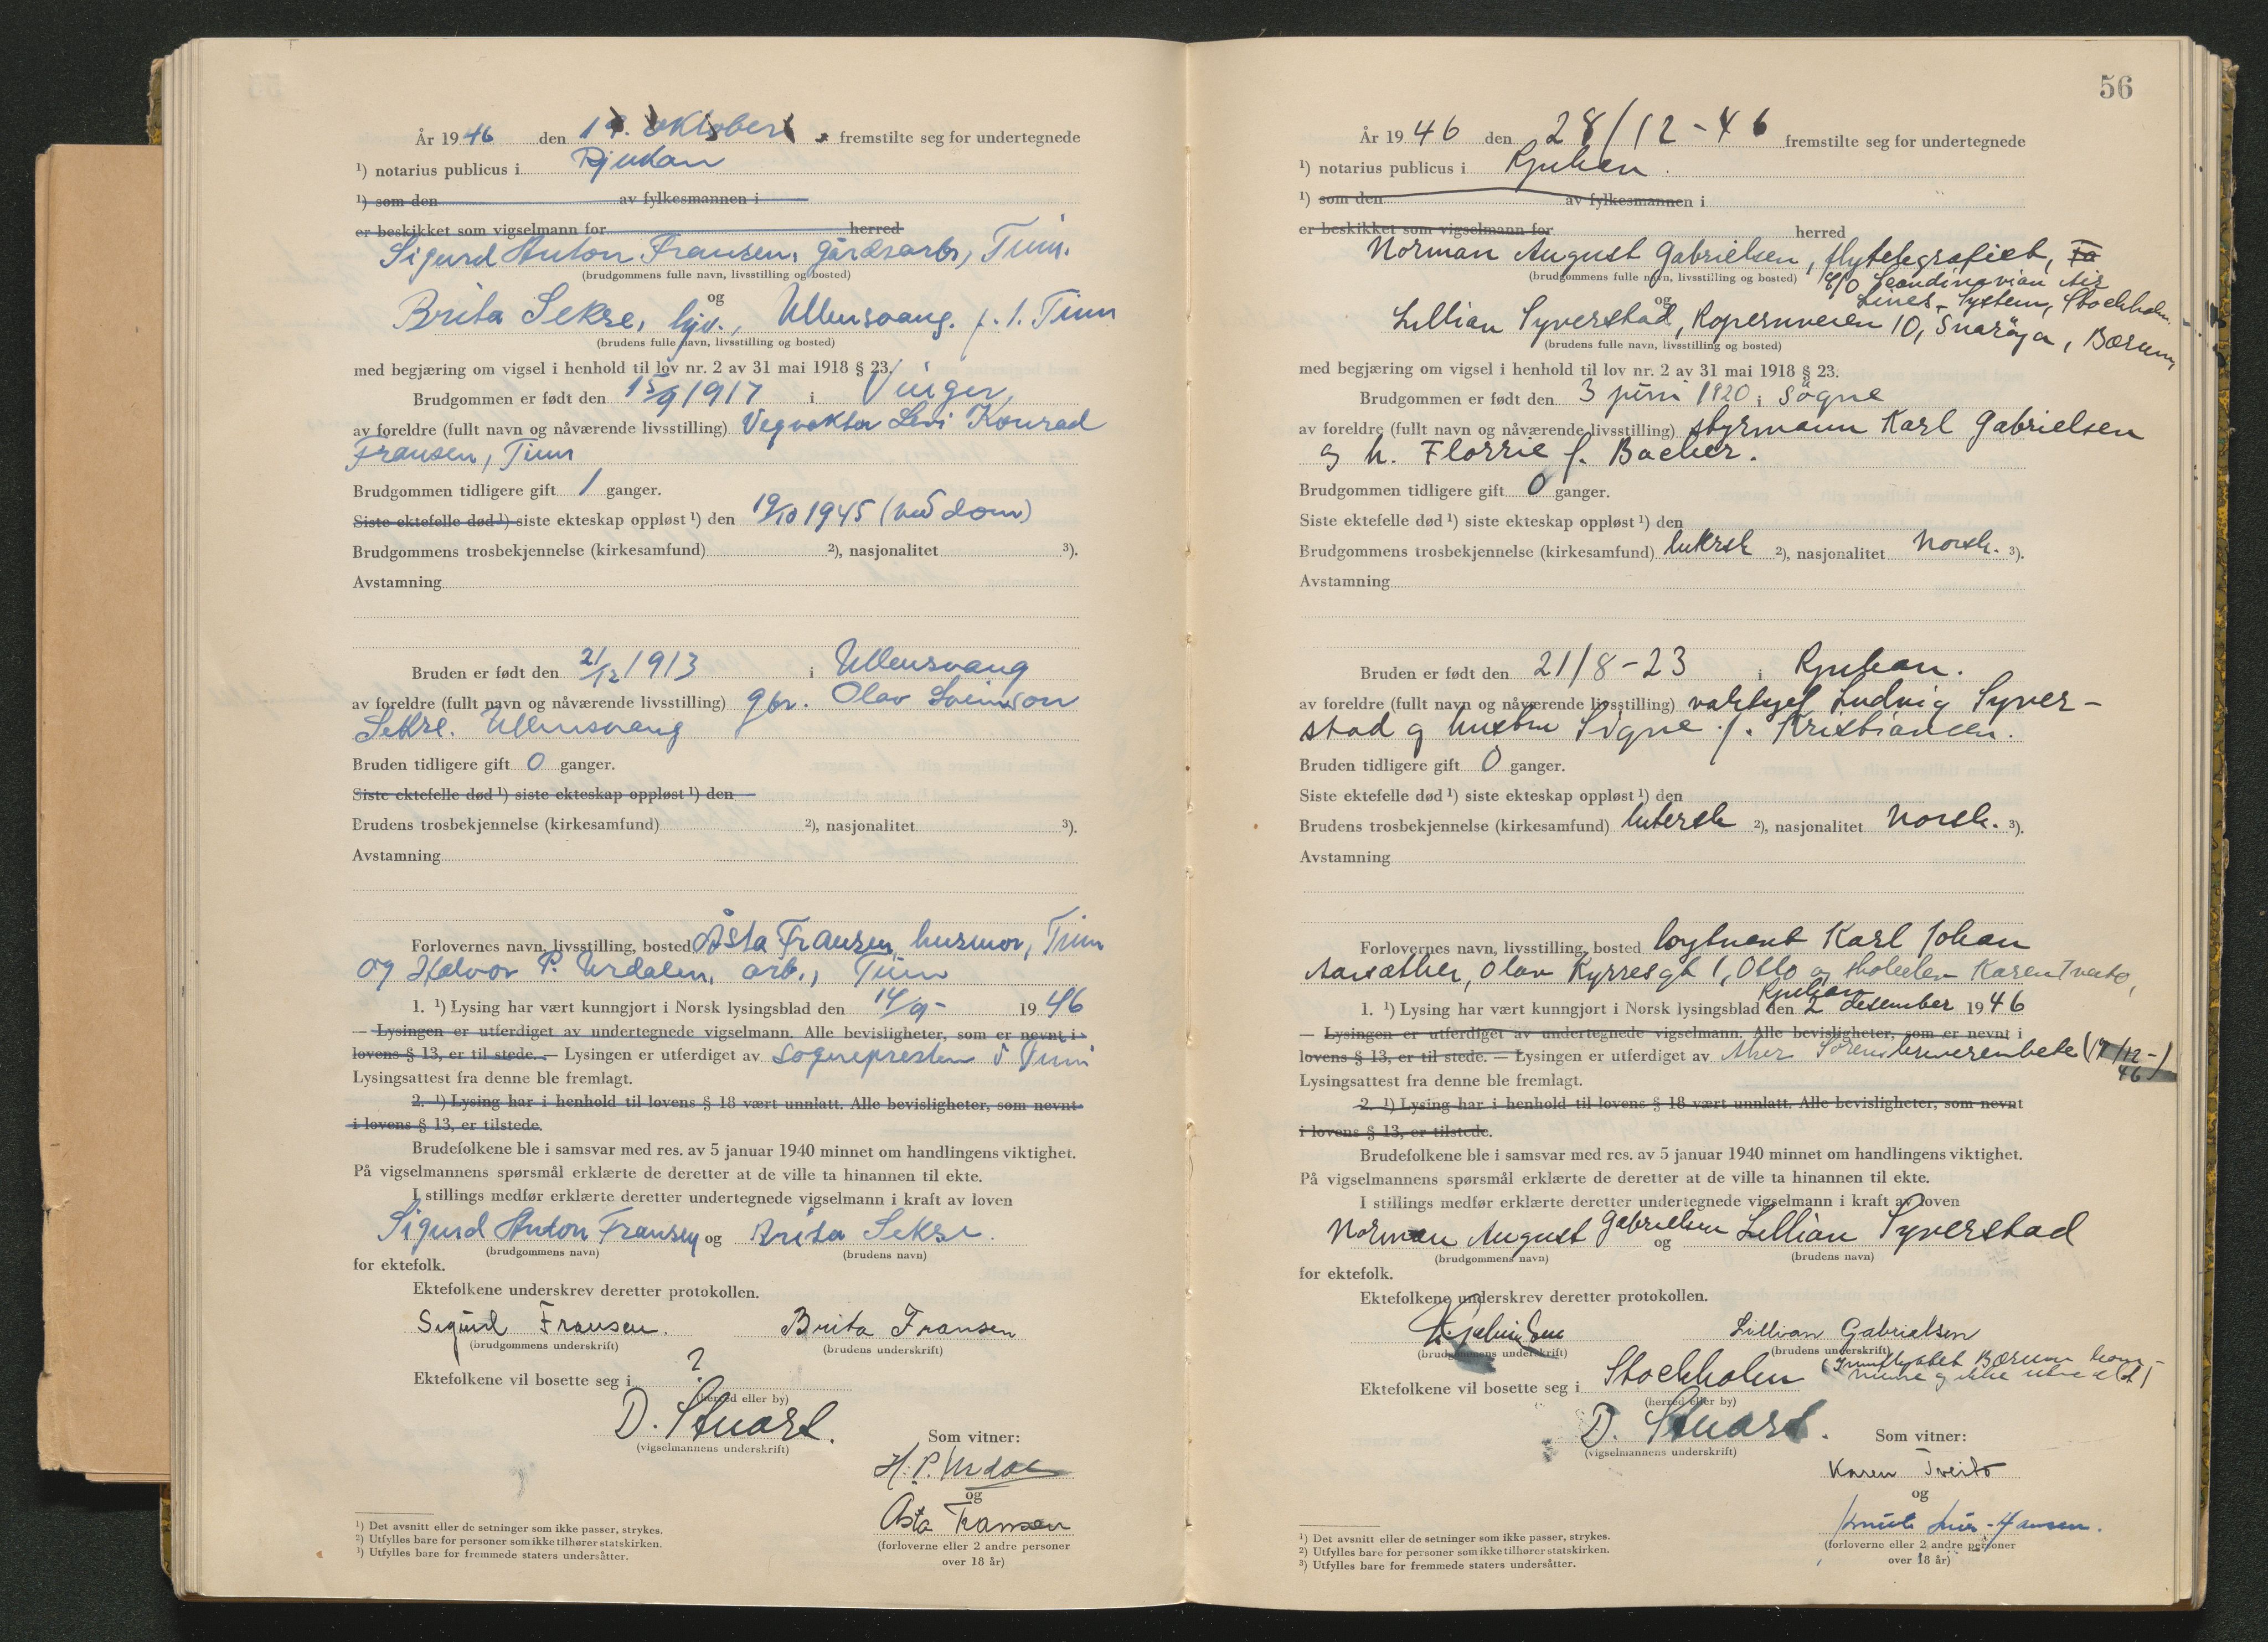 År 1946 den 19. oktober fremstilte seg for undertegnede
¹) notarius publicus i Rjukan
¹) som den av fylkesmannen i
er beskikket som vigselmann for herred
Sigurd Anton Fransen, gårdsarb, Tinn.
(brudgommens fulle navn, livsstilling og bosted)
og
Brita Sekse, Ullensvang. f. t. Tinn
(brudens fulle navn, livsstilling og bosted)
med begjæring om vigsel i henhold til lov nr. 2 av 31 mai 1918 § 23.
Brudgommen er født den 15/9 1917 i Vinger,
av foreldre (fullt navn og nåværende livsstilling) Vegvokter Levi Konrad
Fransen, Tinn
Brudgommen tidligere gift 1 ganger.
Siste ektefelle død ¹) siste ekteskap oppløst ¹) den 19/10 1945 (ved dom)
Brudgommens trosbekjennelse (kirkesamfund) ²), nasjonalitet ³).
Avstamning
Bruden er født den 21/12 1913 i Ullensvang
av foreldre (fullt navn og nåværende livsstilling) gbr. Olav Sveinson
Sekse. Ullensvang
Bruden tidligere gift 0 ganger.
Siste ektefelle død ¹) siste ekteskap oppløst ¹) den
Brudens trosbekjennelse (kirkesamfund) ²), nasjonalitet ³).
Avstamning
Forlovernes navn, livsstilling, bosted Åsta Fransen, husmor, Tinn
og Halvor P. Urdalen, arb., Tinn
1. ¹) Lysing har vært kunngjort i Norsk lysingsblad den 14/9- 1946
— Lysingen er utferdiget av undertegnede vigselmann. Alle bevisligheter, som er nevnt i
lovens § 13, er til stede. — Lysingen er utferdiget av sognepresten i Tinn
Lysingsattest fra denne ble fremlagt.
2. ¹) Lysing har i henhold til lovens § 18 vært unnlatt. Alle bevisligheter, som nevnt
i lovens § 13, er tilstede.
Brudefolkene ble i samsvar med res. av 5 januar 1940 minnet om handlingens viktighet.
På vigselmannens spørsmål erklærte de deretter at de ville ta hinannen til ekte.
I stillings medfør erklærte deretter undertegnede vigselmann i kraft av loven
Sigurd Anton Fransen og Brita Sekse.
(brudgommens navn) (brudens navn)
for ektefolk.
Ektefolkene underskrev deretter protokollen.
Sigurd Fransen. Brita Fransen
(brudgommens underskrift) (brudens underskrift)
Ektefolkene vil bosette seg i ?
(herred eller by)
D. Stuart.
(vigselmannens underskrift)
Som vitner:
H. P. Urdal
og
Åsta Fransen
(forloverne eller 2 andre personer
over 18 år)
¹) Det avsnitt eller de setninger som ikke passer, strykes.
²) Utfylles bare for personer som ikke tilhører statskirken.
³) Utfylles bare for fremmede staters undersåtter.
56
År 1946 den 28/12-46 fremstilte seg for undertegnede
¹) notarius publicus i Rjukan.
¹) som den av fylkesmannen i
er beskikket som vigselmann for herred
Norman August Gabrielsen, flytelegrafist,
(brudgommens fulle navn, livsstilling og bosted) c/o Scandinavian Air
Lines-System, Stockholm.
og
Lillian Syverstad, Kopernveien 10, Snarøya, Bærum
(brudens fulle navn, livsstilling og bosted)
med begjæring om vigsel i henhold til lov nr. 2 av 31 mai 1918 § 23.
Brudgommen er født den 3 juni 1920 i Søgne
av foreldre (fullt navn og nåværende livsstilling) styrmann Karl Gabrielsen
og h. Florrie f. Bacher.
Brudgommen tidligere gift 0 ganger.
Siste ektefelle død ¹) siste ekteskap oppløst ¹) den
Brudgommens trosbekjennelse (kirkesamfund) lutersk ²), nasjonalitet Norsk. ³).
Avstamning
Bruden er født den 21/8-23 i Rjukan.
av foreldre (fullt navn og nåværende livsstilling) Ludvig Syver-
stad og hustru Signe f. Kristiansen.
Bruden tidligere gift 0 ganger.
Siste ektefelle død ¹) siste ekteskap oppløst ¹) den
Brudens trosbekjennelse (kirkesamfund) lutersk ²), nasjonalitet Norsk. ³).
Avstamning
Forlovernes navn, livsstilling, bosted løytnant Karl Johan
Aarsæther, Olav Kyrresgt 1, Oslo og Karen Tveito,
Rjukan
1. ¹) Lysing har vært kunngjort i Norsk lysingsblad den 2 desember 1946
— Lysingen er utferdiget av undertegnede vigselmann. Alle bevisligheter, som er nevnt i
lovens § 13, er til stede. — Lysingen er utferdiget av Aker Sorenskriverembete (17/12-46)
Lysingsattest fra denne ble fremlagt.
2. ¹) Lysing har i henhold til lovens § 18 vært unnlatt. Alle bevisligheter, som nevnt
i lovens § 13, er tilstede.
Brudefolkene ble i samsvar med res. av 5 januar 1940 minnet om handlingens viktighet.
På vigselmannens spørsmål erklærte de deretter at de ville ta hinannen til ekte.
I stillings medfør erklærte deretter undertegnede vigselmann i kraft av loven
Norman August Gabrielsen og Lillian Syverstad
(brudgommens navn) (brudens navn)
for ektefolk.
Ektefolkene underskrev deretter protokollen.
Lillian Gabrielsen
(brudgommens underskrift) (brudens underskrift)
Ektefolkene vil bosette seg i Stockholm
(herred eller by)
D. Stuart.
(vigselmannens underskrift)
Som vitner:
Karen Tveito
og
(forloverne eller 2 andre personer
over 18 år)
¹) Det avsnitt eller de setninger som ikke passer, strykes.
²) Utfylles bare for personer som ikke tilhører statskirken.
³) Utfylles bare for fremmede staters undersåtter.